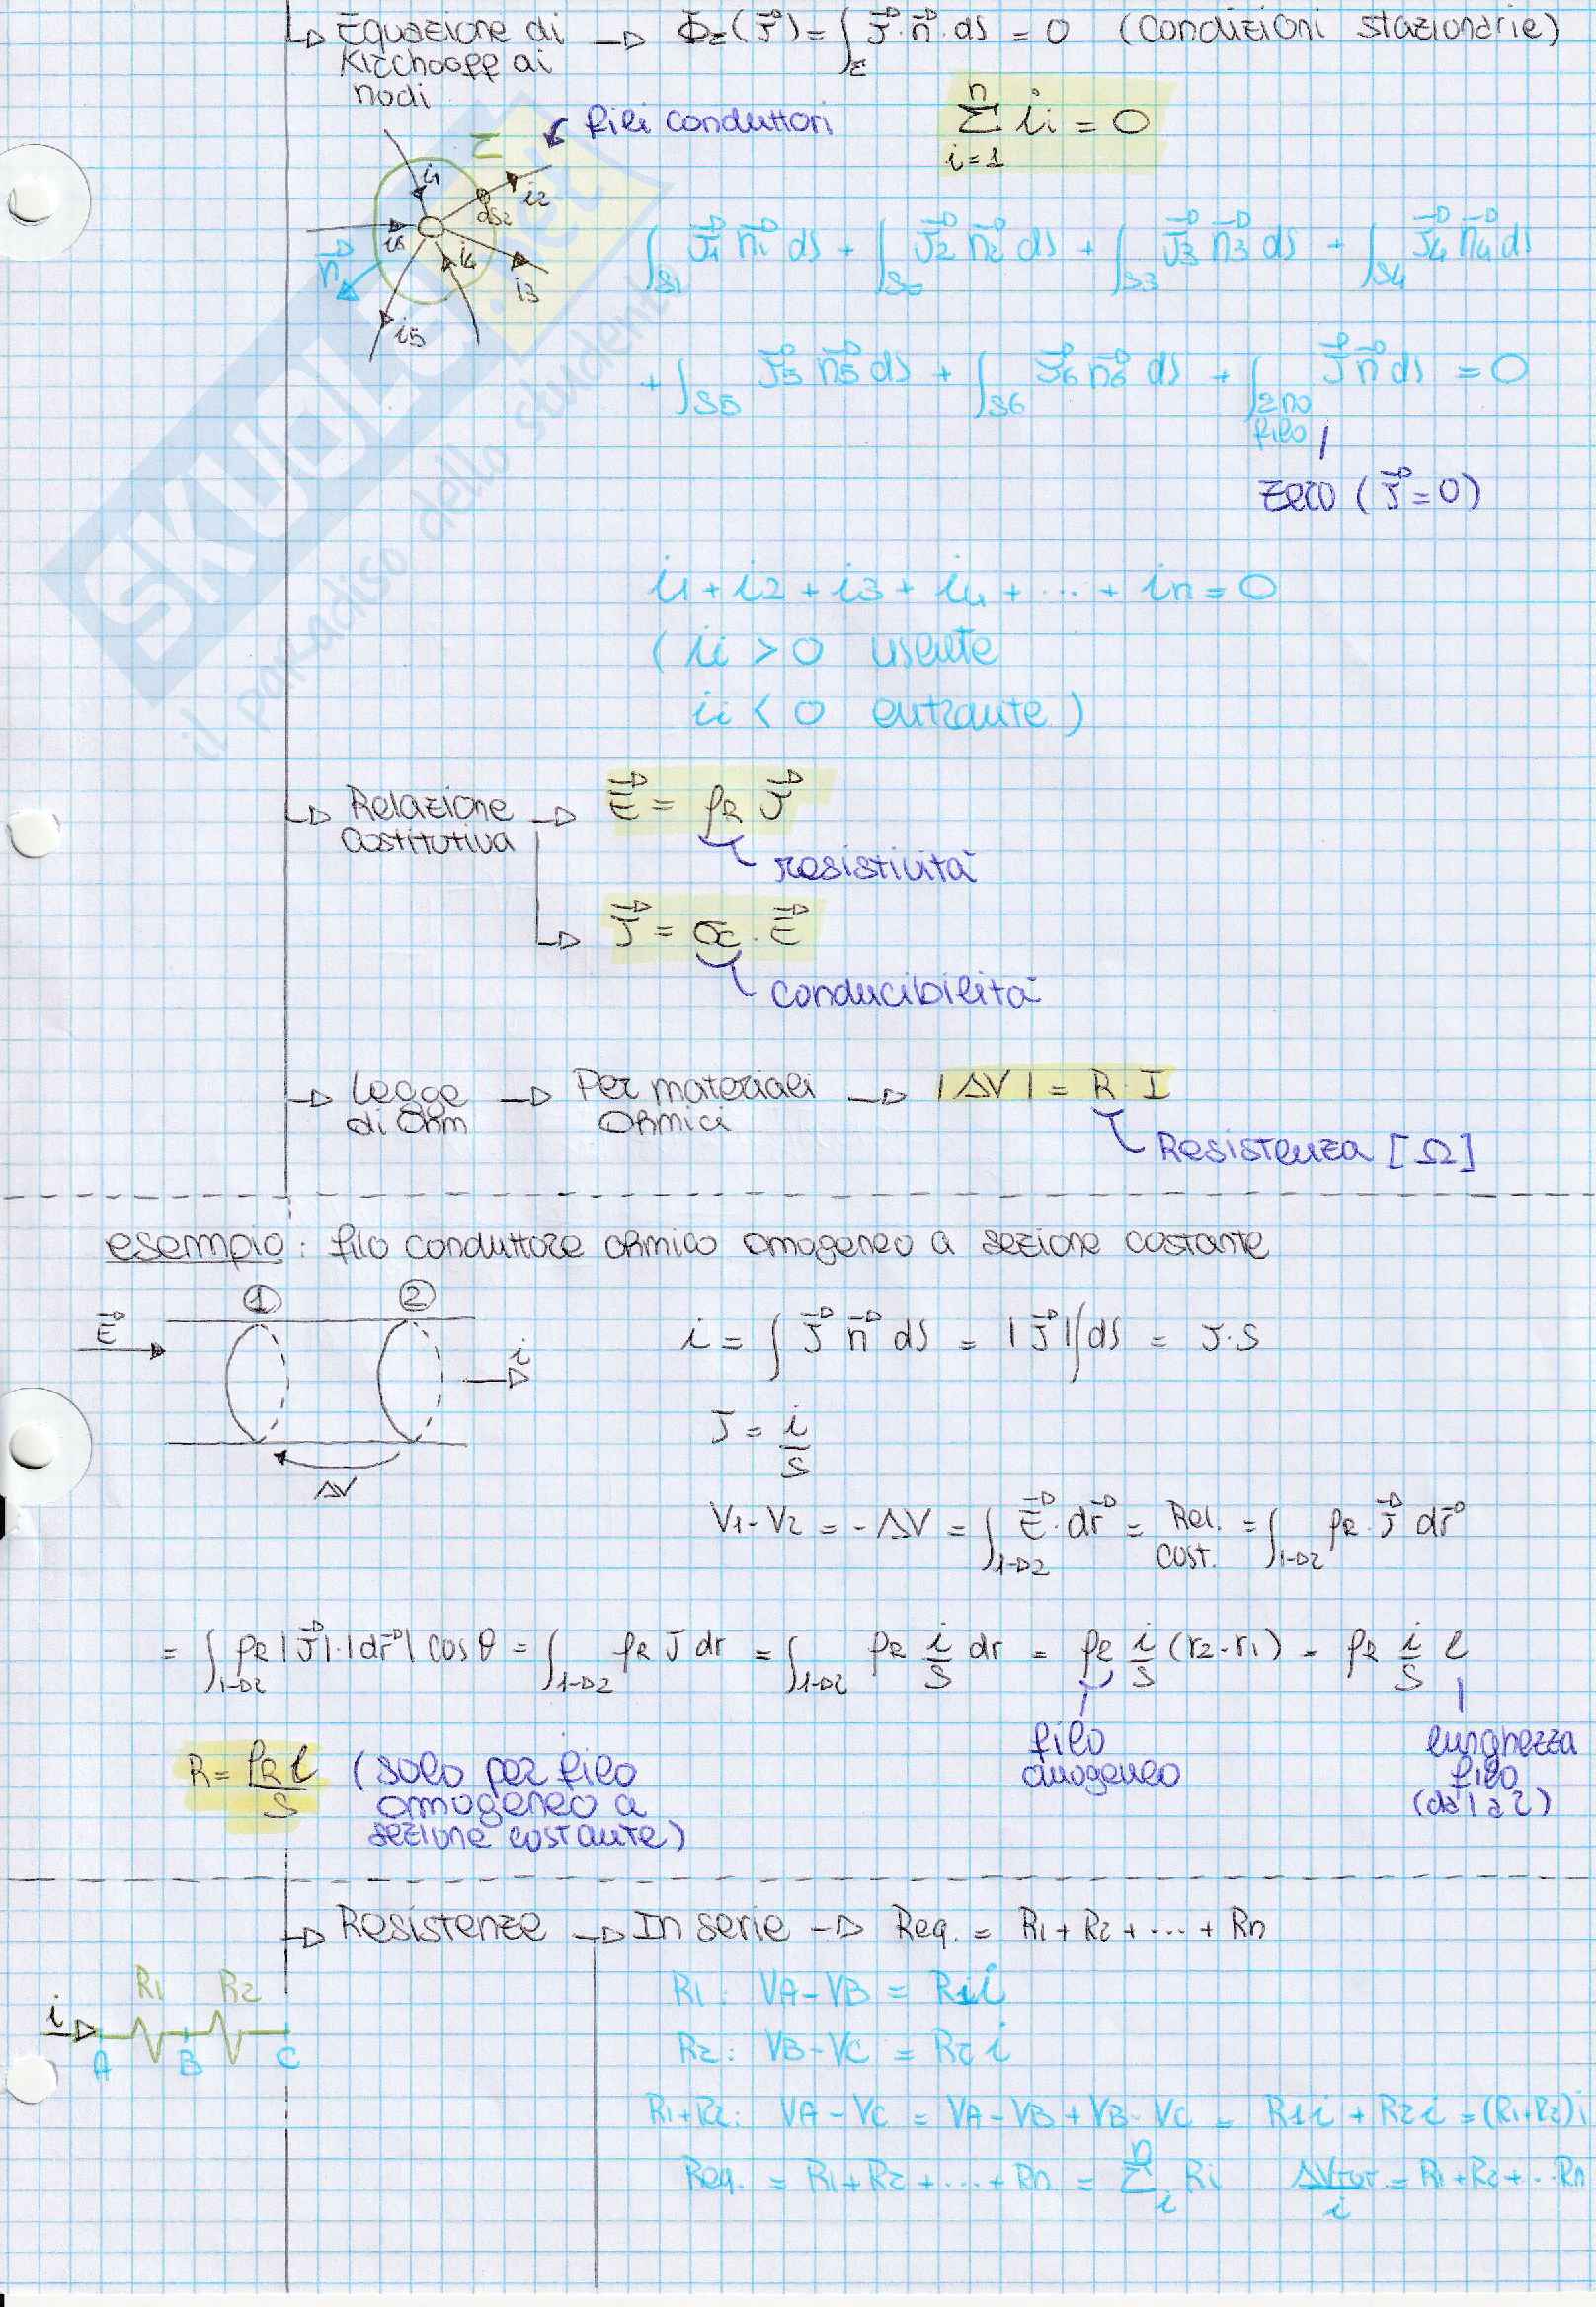 Equazione di → Φ_Σ(J⃗) = ∫_Σ J⃗·n⃗·ds = 0 (condizioni stazionarie)
Kirchooff ai
nodi
Σ fili conduttori
∑_{i=1}^{n} i_i = 0
i1 i2 ds2 i3 i4 i5 n⃗
∫_S1 J⃗1 n⃗1 ds + ∫_S2 J⃗2 n⃗2 ds + ∫_S3 J⃗3 n⃗3 ds + ∫_S4 J⃗4 n⃗4 ds
+ ∫_S5 J⃗5 n⃗5 ds + ∫_S6 J⃗6 n⃗6 ds + ∫_{Σ no filo} J⃗ n⃗ ds = 0
zero (J⃗ = 0)
i1 + i2 + i3 + i4 + ... + in = 0
( ii > 0 uscente
ii < 0 entrante )
Relazione → E⃗ = ρR J⃗
costitutiva
resistività
J⃗ = σc · E⃗
conducibilità
Legge → Per materiali → |ΔV| = R · I
di Ohm ohmici
Resistenza [Ω]
esempio: filo conduttore ohmico omogeneo a sezione costante
1 2
E⃗ i
ΔV
i = ∫ J⃗ n⃗ ds = |J⃗| ∫ ds = J·S
J = i/S
V1 - V2 = -ΔV = ∫_{1→2} E⃗·dr⃗ = Rel. cost. = ∫_{1→2} ρR·J⃗ dr⃗
= ∫_{1→2} ρR |J⃗|·|dr⃗| cos θ = ∫_{1→2} ρR J dr = ∫_{1→2} ρR i/S dr = ρR i/S (r2-r1) = ρR i/S l
filo
omogeneo
lunghezza
filo
(da 1 a 2)
R = ρR l/S (solo per filo
omogeneo a
sezione costante)
Resistenze → In serie → Req. = R1 + R2 + ... + Rn
R1 R2
i A B C
R1: VA - VB = R1i
R2: VB - VC = R2 i
R1+R2: VA - VC = VA - VB + VB - VC = R1i + R2i = (R1+R2)i
Req. = R1 + R2 + ... + Rn = ∑_i^n Ri ΔVtot/i = R1 + R2 + ... Rn
SKUOLA.net
il paradiso dello studente